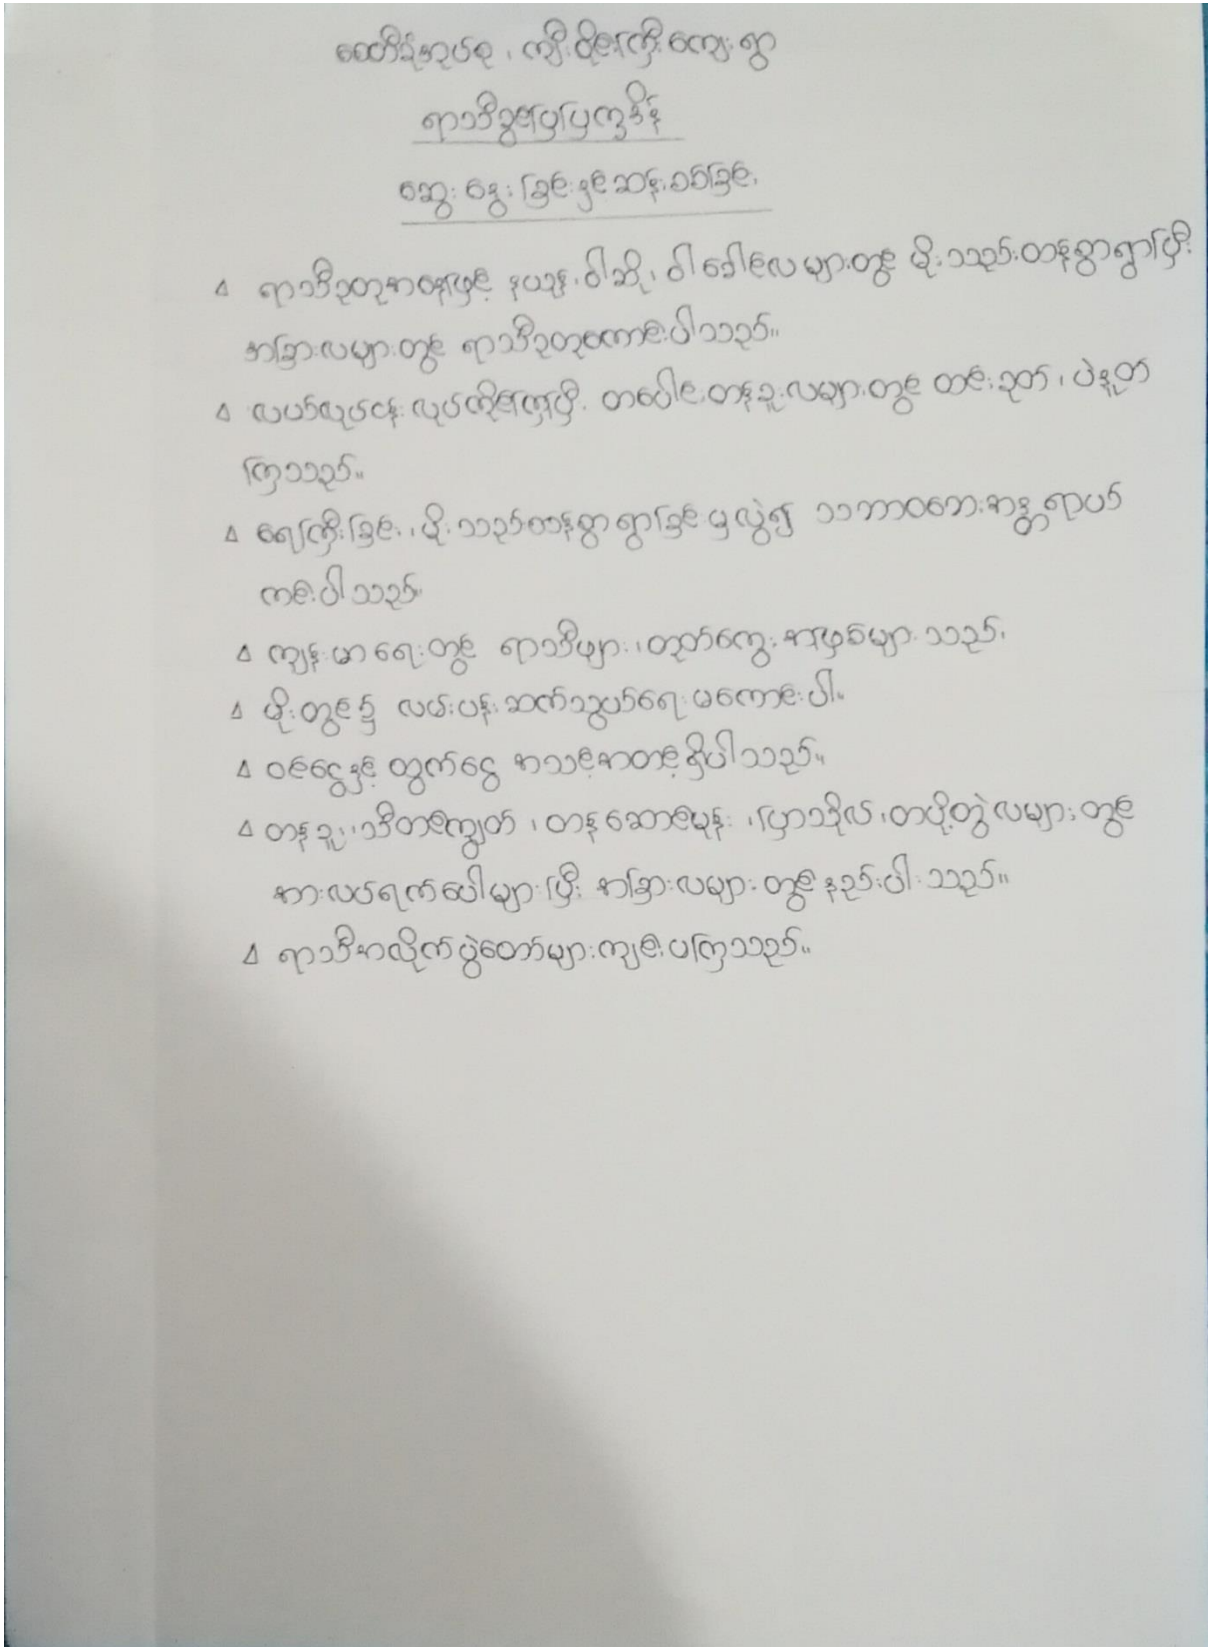 ထော်အုပ်စု ၊ ကျီးပိုင်ကြီးကျေးရွာ
ရာသီခွင်ပြပြက္ခဒိန်
ဆွေးနွေးခြင်းနှင့်ဆန်းစစ်ခြင်း
∆ ရာသီဥတုအနေဖြင့် နယုန်၊ ဝါဆို၊ ဝါခေါင်လများတွင် မိုးသည်းထန်စွာရွာပြီး
အခြားလများတွင် ရာသီဥတုကောင်းပါသည်။
∆ လယ်လုပ်ငန်းလုပ်ကိုင်ကြပြီး တပေါင်း၊တန်ခူးလများတွင် ထင်းခုတ်၊ ပဲနူတ်
ကြသည်။
∆ ရေကြီးခြင်း၊ မိုးသည်းထန်စွာရွာခြင်းမှလွဲ၍ သဘာဝဘေးအန္တရာယ်
ကင်းပါသည်။
∆ ကျန်းမာရေးတွင် ရာသီဖျား၊ တုတ်ကွေးအဖြစ်များသည်။
∆ မိုးတွင်း၌ လမ်းပန်းဆက်သွယ်ရေးမကောင်းပါ။
∆ ဝင်ငွေနှင့် ထွက်ငွေ အသင့်အတင့်ရှိပါသည်။
∆ တန်ခူး၊ သီတင်းကျွတ် ၊ တန်ဆောင်မုန်း ၊ ပြာသိုလ် ၊တပို့တွဲလများတွင်
အားလပ်ရက်ပေါများပြီး အခြားလများတွင်နည်းပါးသည်။
∆ ရာသီအလိုက်ပွဲတော်များကျင်းပကြသည်။